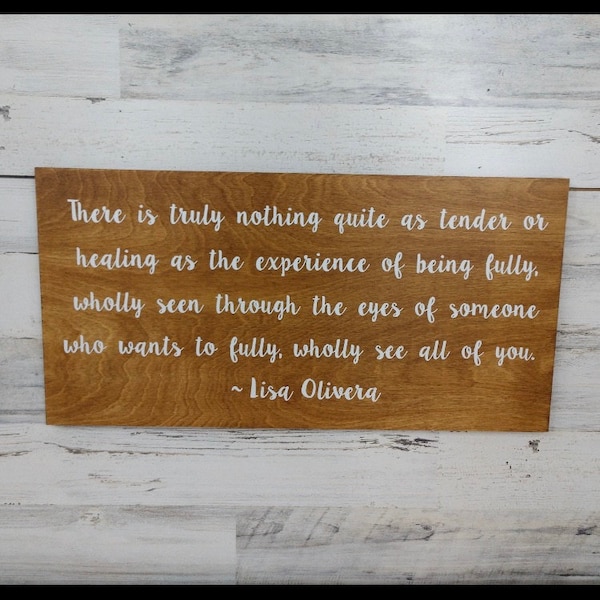 There is truly nothing quite as tender or
healing as the experience of being fully,
wholly seen through the eyes of someone
who wants to fully, wholly see all of you.
~ Lisa Olivera